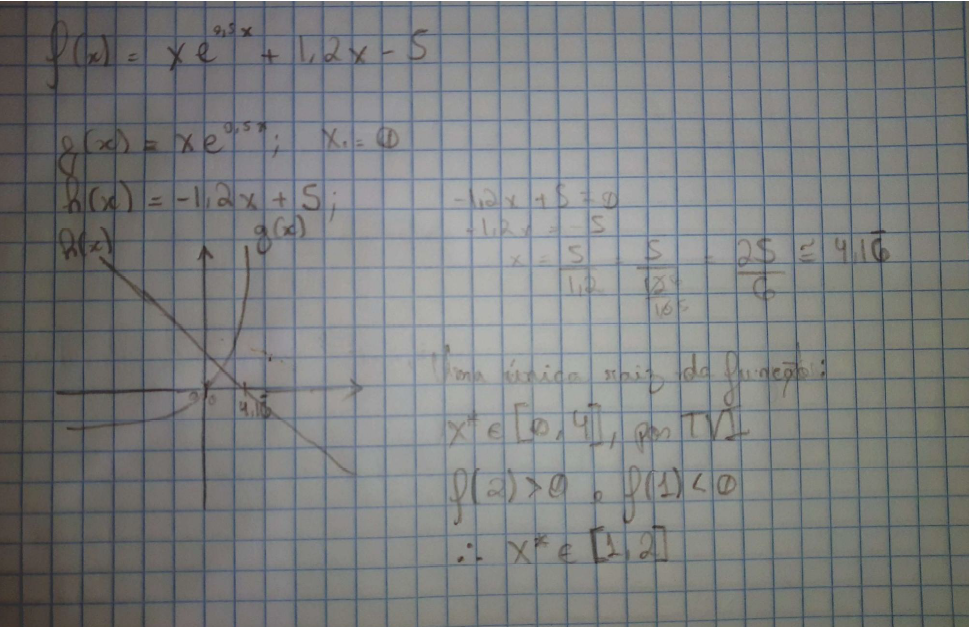 f(x) = xe^0,5x + 1,2x - 5
g(x) = xe^0,5x; x = 0
h(x) = -1,2x + 5;
-1,2x + 5 = 0
-1,2x = -5
x = 5/1,2 = 5/(12/10) = 25/6 ≅ 4,16̅
h(x)
g(x)
0
4,16̅
Uma única raiz da função:
x* ∈ [0, 4], por TVI
f(2) > 0 e f(1) < 0
∴ x* ∈ [1, 2]